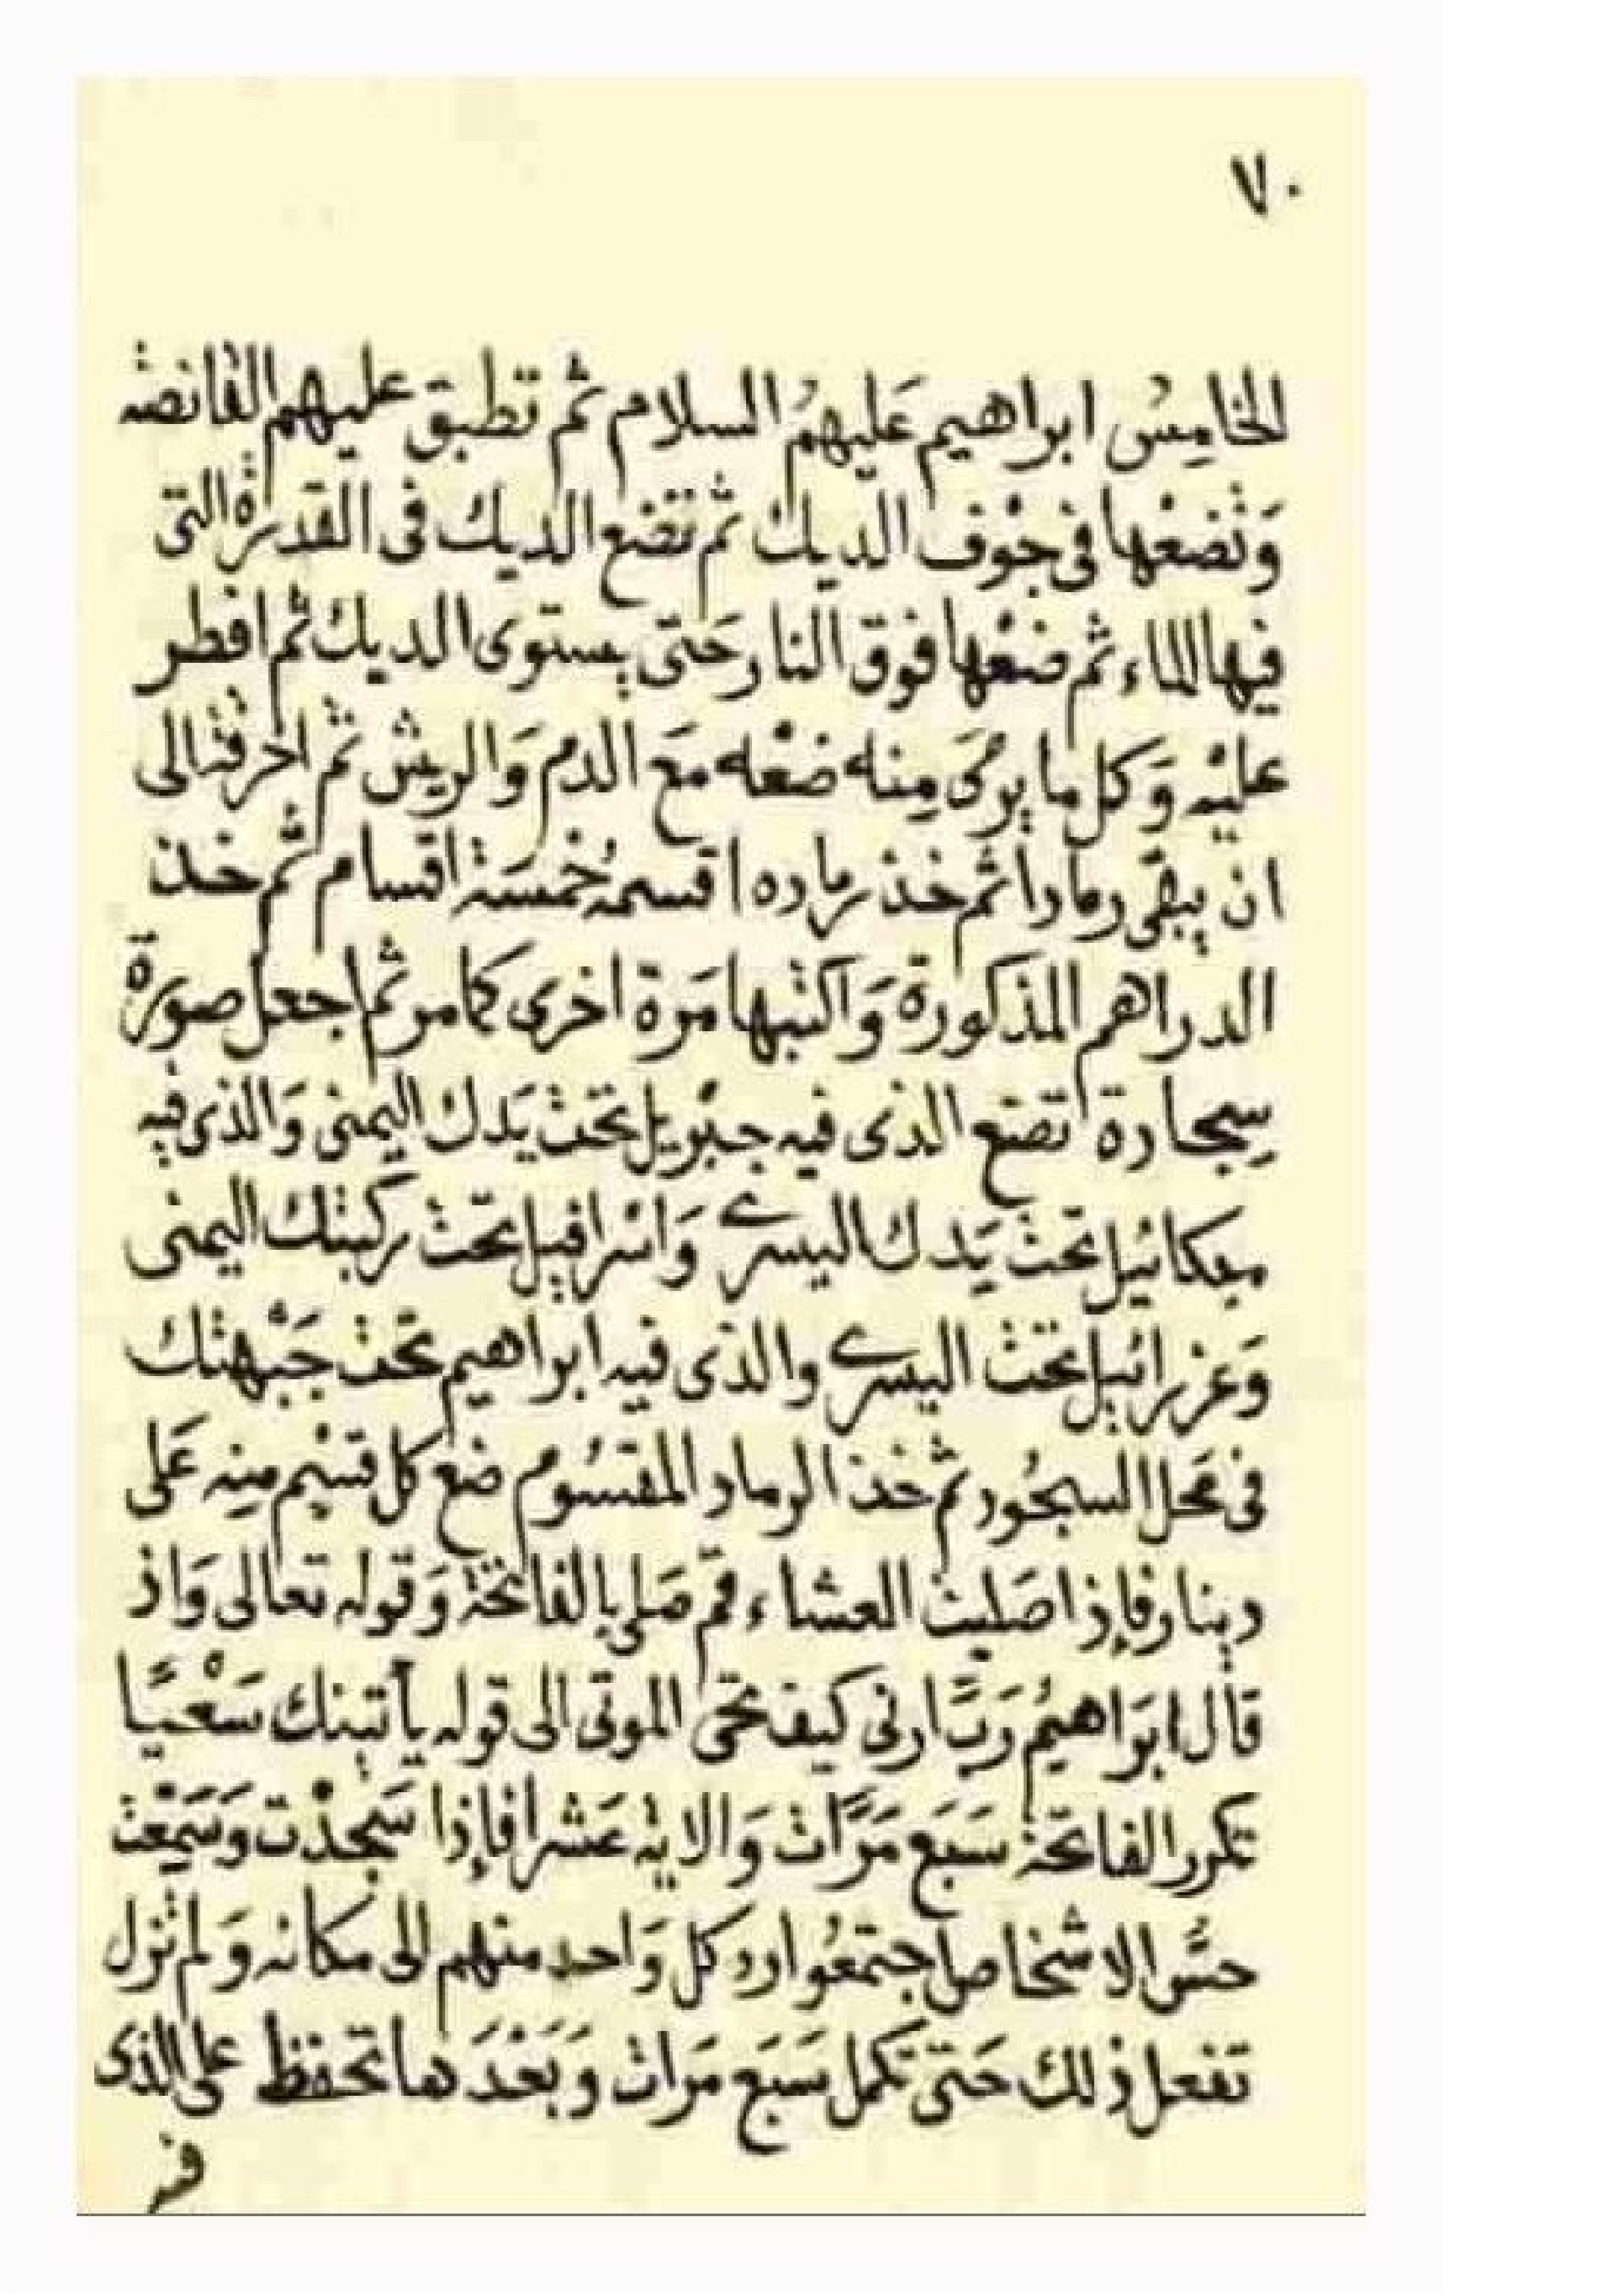 ٧٠
الخامِسُ ابراهيم عَليهمُ السلام ثم تطبق عليهم القانصة
وَتضعْها في جوْف الديك ثم تضع الديك فى القدرة التى
فيها الماء ثم ضعْها فوق النار حَتى يستوى الديك ثم افطر
عليْه وَكل ما يرمَى مِنه ضعْه مَع الدم وَالريش ثم احرقها الى
ان يبقى رمادا ثم خذ رماده اقسمه خمسَة اقسام ثم خذ
الدراهم المذكورة وَاكتبها مَرة اخرى كما مر ثم اجعل صورة
سِجادة تضع الذى فيه جبْريل تحت يَدك اليمنى وَالذى فيه
ميكائيل تحت يَدك اليسرى وَاسْرافيل تحت ركبتك اليمنى
وَعزرائيل تحت اليسرى والذى فيه ابراهيم تحت جَبْهتك
فى محل السجُود ثم خذ الرماد المقسُوم ضع كل قسْم مِنه عَلى
دينار فإذا صَليت العشاء قم صَلى بالفاتحة وَقوله تعالى وَاذ
قال ابرَاهيمُ رَبِّ ارنى كيف تحى الموتى الى قوله يأتينك سَعْيًا
تكرر الفاتحة سَبَع مَرَّات وَالاية عَشرا فإذا سَجدْت وَسَمِعْت
حسَّ الاشخاص اجتمعُوا رد كل وَاحد منهم الى مكانه وَلم تزل
تفعل ذلك حَتى تكمل سَبَع مَرات وَبَعْدَها تحفظ على الذى